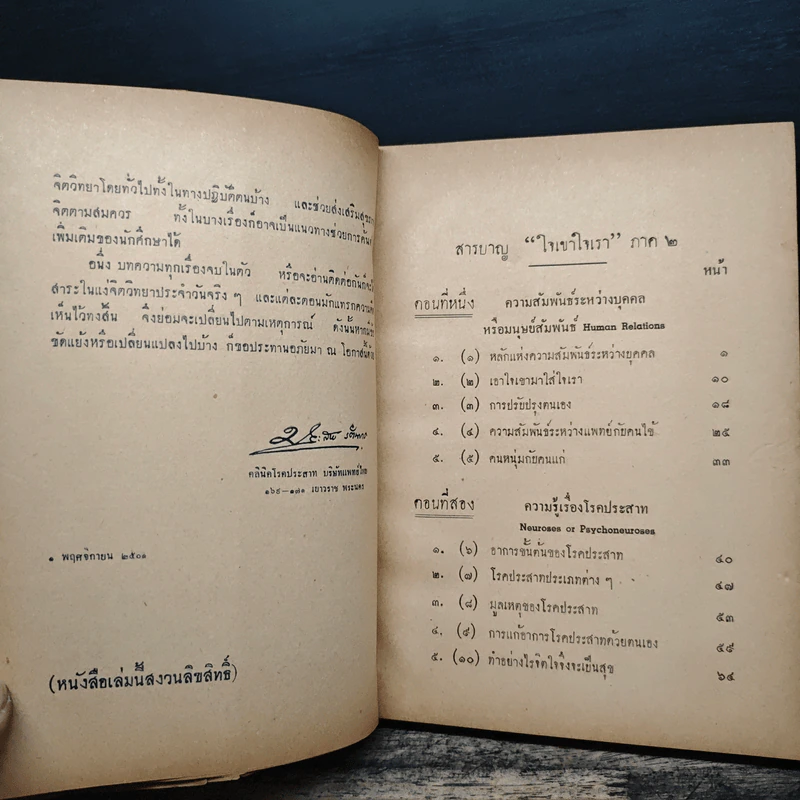 จิตวิทยาโดยทั่วไปทั้งในทางปฏิบัติตนบ้าง และช่วยส่งเสริมสุข
จิตตามสมควร ทั้งในบางเรื่องก็อาจเป็นแนวทางช่วยการค้น
เพิ่มเติมของนักศึกษาได้
อนึ่ง บทความทุกเรื่องจบในตัว หรือจะอ่านติดต่อกันก็จะ
สาระในแง่จิตวิทยาประจำวันจริง ๆ และแต่ละตอนมักแทรกความ
เห็นไว้ทั้งสิ้น จึงย่อมจะเปลี่ยนไปตามเหตุการณ์ ดังนั้นหาก
ขัดแย้งหรือเปลี่ยนแปลงไปบ้าง ก็ขอประทานอภัยมา ณ โอกาสนี้ด้วย
คลินิคโรคประสาท บริษัทแพทย์ไทย
๑๖๙–๑๗๑ เยาวราช พระนคร
๑ พฤศจิกายน ๒๕๐๑
(หนังสือเล่มนี้สงวนลิขสิทธิ์)
สารบาญ “ใจเขาใจเรา” ภาค ๒
หน้า
ตอนที่หนึ่ง ความสัมพันธ์ระหว่างบุคคล
หรือมนุษย์สัมพันธ์ Human Relations
๑. (๑) หลักแห่งความสัมพันธ์ระหว่างบุคคล ๑
๒. (๒) เอาใจเขามาใส่ใจเรา ๑๐
๓. (๓) การปรับปรุงตนเอง ๑๘
๔. (๔) ความสัมพันธ์ระหว่างแพทย์กับคนไข้ ๒๕
๕. (๕) คนหนุ่มกับคนแก่ ๓๓
ตอนที่สอง ความรู้เรื่องโรคประสาท
Neuroses or Psychoneuroses
๑. (๖) อาการขั้นต้นของโรคประสาท ๔๐
๒. (๗) โรคประสาทประเภทต่าง ๆ ๔๗
๓. (๘) มูลเหตุของโรคประสาท ๕๓
๔. (๙) การแก้อาการโรคประสาทด้วยตนเอง ๕๙
๕. (๑๐) ทำอย่างไรจิตใจจึงจะเป็นสุข ๖๔